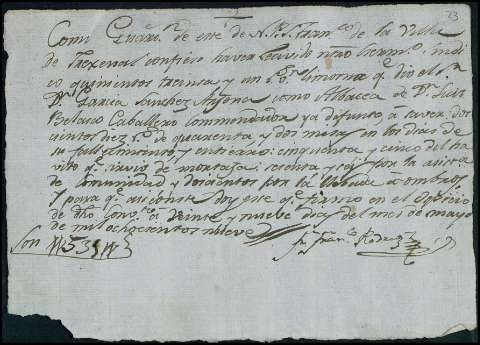 23
Como Guard.n de este C.to de N. P. S. Fran.co de la Villa
de Frexenal confieso haver recivido nro herm.o Sindi
co quinientos treinta y un r.s limosna q.e dio el S.r
D.n Garcia Sanchez Arjona como Albacea de D.n Luis
Velasco Caballero Commendador ya difunto á saver: dos
cientos diez r.s de quarenta y dos misas en los dias de
su fallecimiento, y entierro: cinquenta y cinco del ha
vito q.e sirvio de mortaja: sesenta y seis por la asist.a
de Comunidad y doscientos por la
y para q.e asi conste doy este q.e firmo en el Oficio
de dho Conv.to á veinte y nueve dias del mes de mayo
de mil ochocientos nueve
Son 531
Fr. Fran.co Rodrig.z